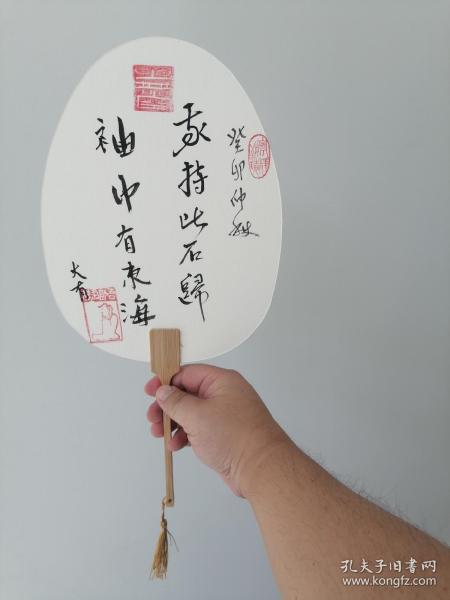 癸卯仲秋
我持此石歸
袖中有東海
大有
孔夫子旧书网
www.kongfz.com